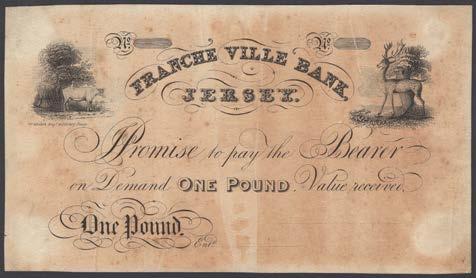 No. No.
FRANCHE VILLE BANK,
JERSEY.
I Promise to pay the Bearer
on Demand ONE POUND. Value received.
One Pound.
Entd.